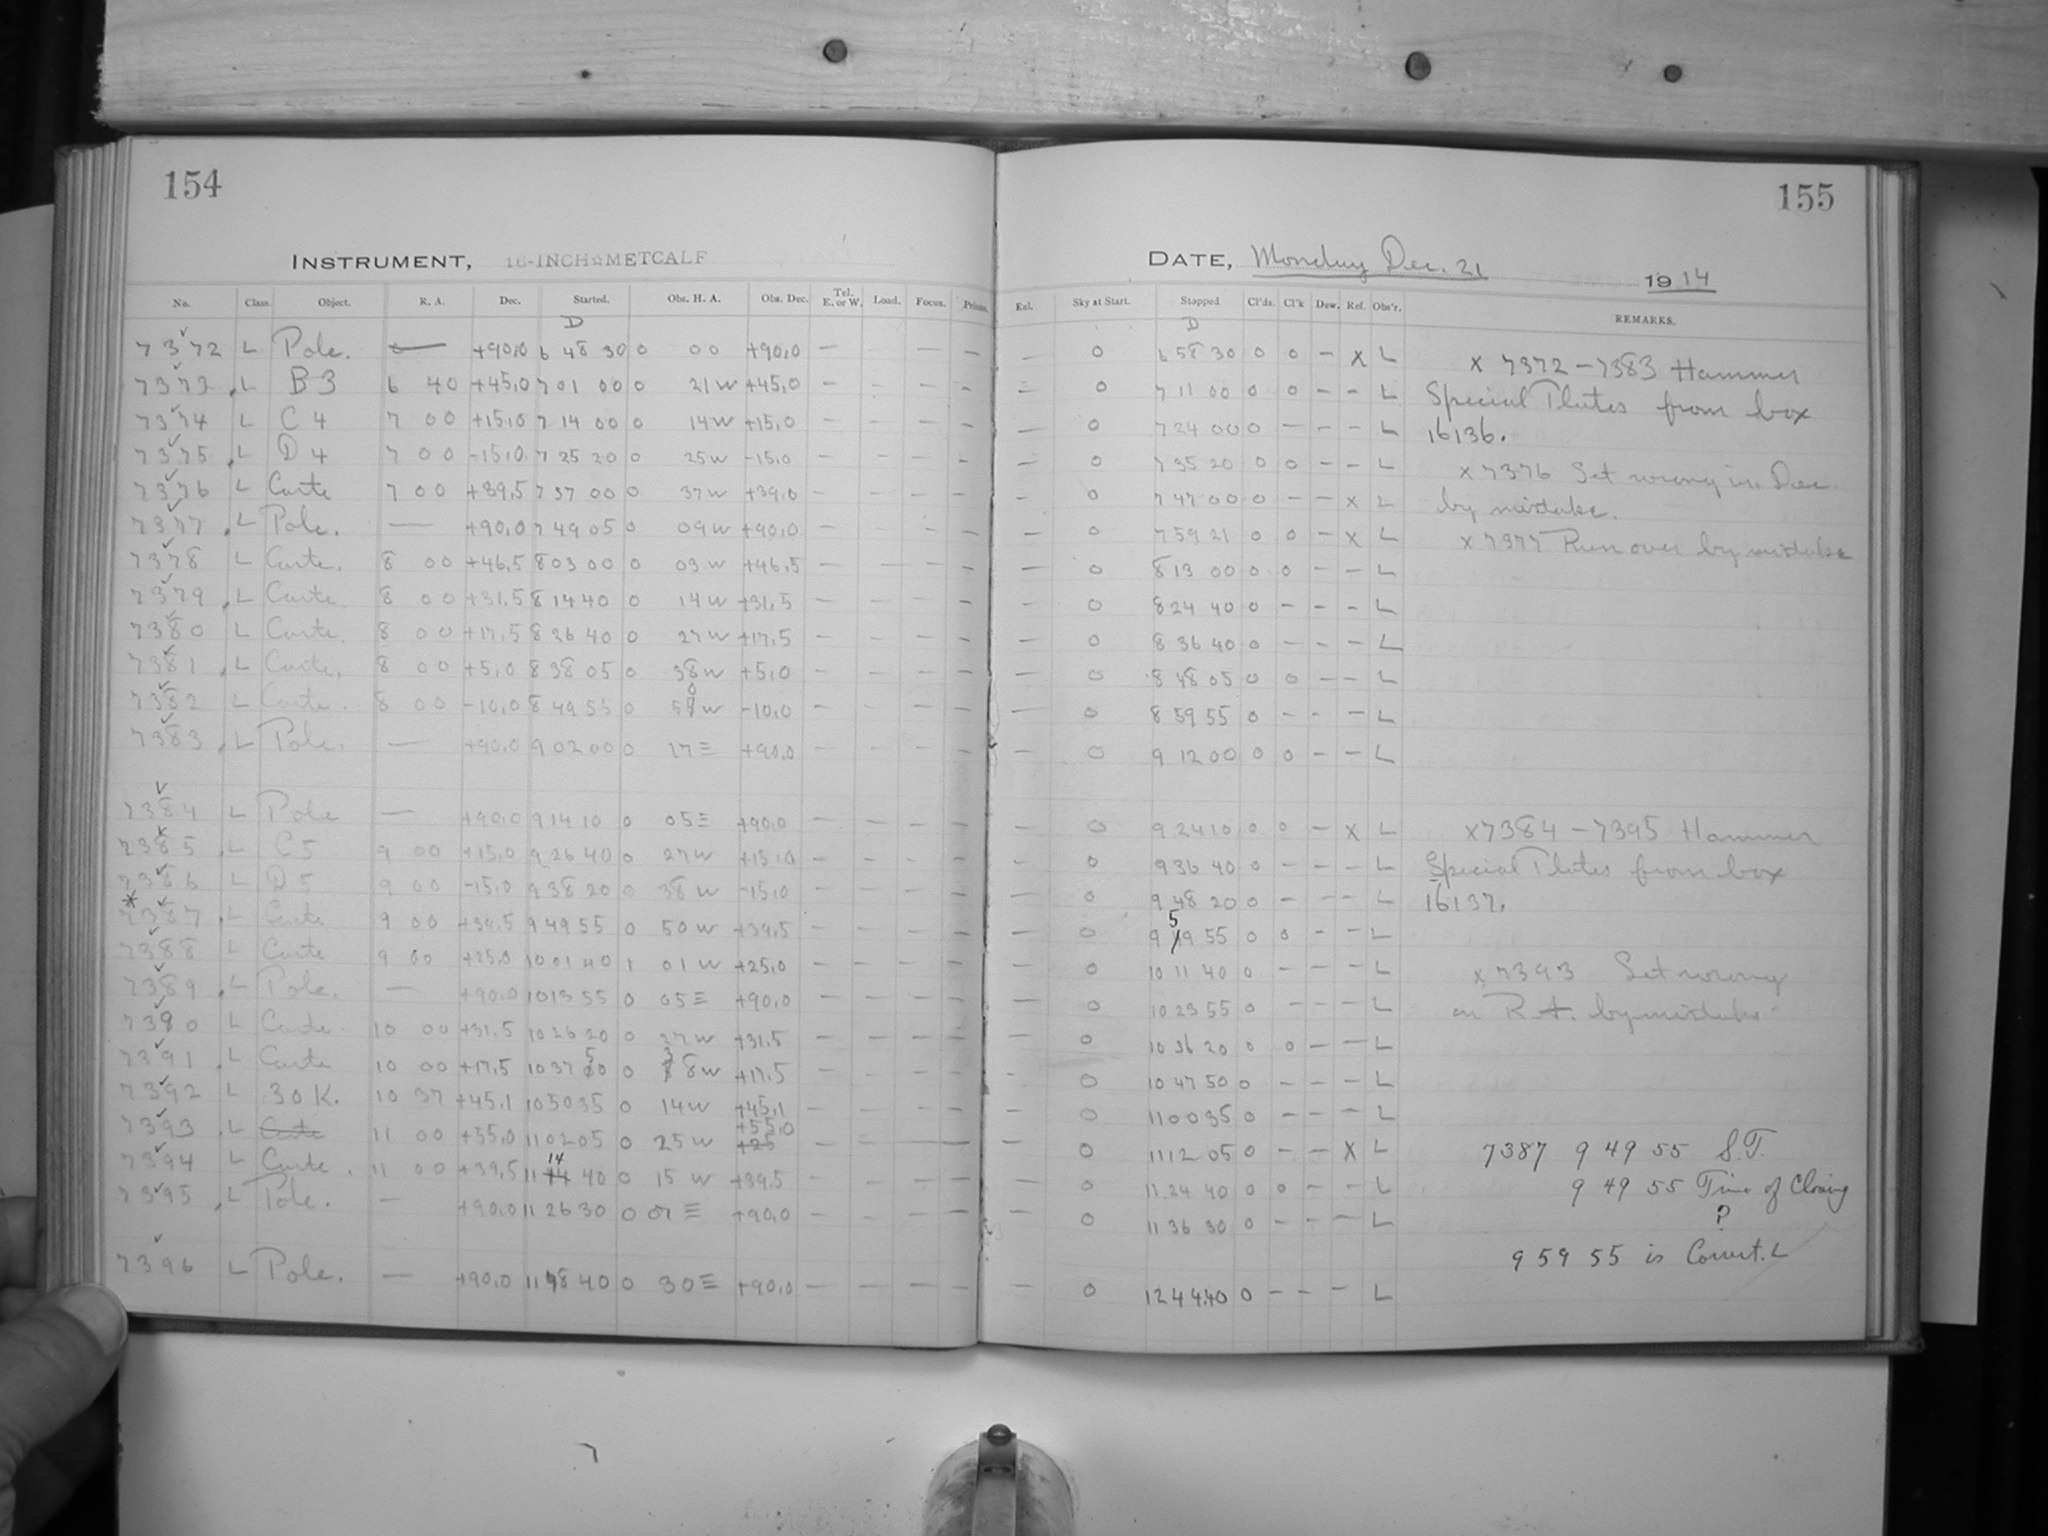 154
INSTRUMENT, 16-INCH METCALF
No. Class. Object. R. A. Dec. Started. Obs. H. A. Obs. Dec. Tel. E. or W. Load. Focus. Prisms.
D
7372 L Pole. — +90,0 6 48 30 0 00 +90,0 — — — —
7373 L B3 6 40 +45,0 7 01 00 0 21 W +45,0 — — — —
7374 L C4 7 00 +15,0 7 14 00 0 14 W +15,0 — — — —
7375 L D4 7 00 -15,0 7 25 20 0 25 W -15,0 — — — —
7376 L Carte 7 00 +39,5 7 37 00 0 37 W +39,0 — — — —
7377 L Pole. — +90,0 7 49 05 0 09 W +90,0 — — —
7378 L Carte. 8 00 +46,5 8 03 00 0 03 W +46,5 — — — —
7379 L Carte. 8 00 +31,5 8 14 40 0 14 W +31,5 — — — —
7380 L Carte. 8 00 +17,5 8 26 40 0 27 W +17,5 — — — —
7381 L Carte. 8 00 +5,0 8 38 05 0 38 W +5,0 — — — —
7382 L Carte. 8 00 -10,0 8 49 55 0 50 W -10,0 — — — —
7383 L Pole. — +90,0 9 02 00 0 17 E +90,0 — — — —
7384 L Pole — +90,0 9 14 10 0 05 E +90,0 — — — —
7385 L C5 9 00 +15,0 9 26 40 0 27 W +15,0 — — — —
7386 L D5 9 00 -15,0 9 38 20 0 38 W -15,0 — — — —
* 7387 L Carte 9 00 +39,5 9 49 55 0 50 W +39,5 — — — —
7388 L Carte 9 00 +25,0 10 01 40 1 01 W +25,0 — — — —
7389 L Pole. — +90,0 10 13 55 0 05 E +90,0 — — — —
7390 L Carte. 10 00 +31,5 10 26 20 0 27 W +31,5 — — — —
7391 L Carte 10 00 +17,5 10 37 50 0 38 W +17,5 — — — —
7392 L 30 K. 10 37 +45,1 10 50 35 0 14 W +45,1 — — — —
7393 L Carte 11 00 +55,0 11 02 05 0 25 W +55,0 +25 — — — —
7394 L Carte. 11 00 +39,5 11 14 40 0 15 W +39,5 — — — —
7395 L Pole. — +90,0 11 26 30 0 01 E +90,0 — — — —
7396 L Pole. — +90,0 11 58 40 0 30 E +90,0 — — — —
155
DATE, Monday Dec. 21 1914
Exl. Sky at Start. Stopped Cl'ds. Cl'k Dew. Ref. Obs'r. REMARKS.
D
— 0 6 58 30 0 0 — x L x 7372 – 7383 Hammer
— 0 7 11 00 0 0 — — L Special Plates from box
— 0 7 24 00 0 — — — L 16136.
— 0 7 35 20 0 0 — — L x 7376 Set wrong in Dec.
— 0 7 47 00 0 — — x L by mistake.
— 0 7 59 21 0 0 — x L x 7377 Run over by mistake
— 0 8 13 00 0 0 — — L
— 0 8 24 40 0 — — — L
— 0 8 36 40 0 — — — L
— 0 8 48 05 0 0 — — L
— 0 8 59 55 0 — — — L
— 0 9 12 00 0 0 — — L
— 0 9 24 10 0 0 — x L x 7384 – 7395 Hammer
— 0 9 36 40 0 — — — L Special Plates from box
— 0 9 48 20 0 — — — L 16137.
— 0 9 59 55 0 0 — — L
— 0 10 11 40 0 — — — L x 7393 Set wrong
— 0 10 23 55 0 — — — L in R.A. by mistake
— 0 10 36 20 0 0 — — L
— 0 10 47 50 0 — — — L
— 0 11 00 35 0 — — — L
— 0 11 12 05 0 — — x L 7387 9 49 55 S.T.
— 0 11 24 40 0 0 — — L 9 49 55 Time of Closing
— 0 11 36 30 0 — — — L ?
9 59 55 is Correct. L
— 0 12 44 40 0 — — — L